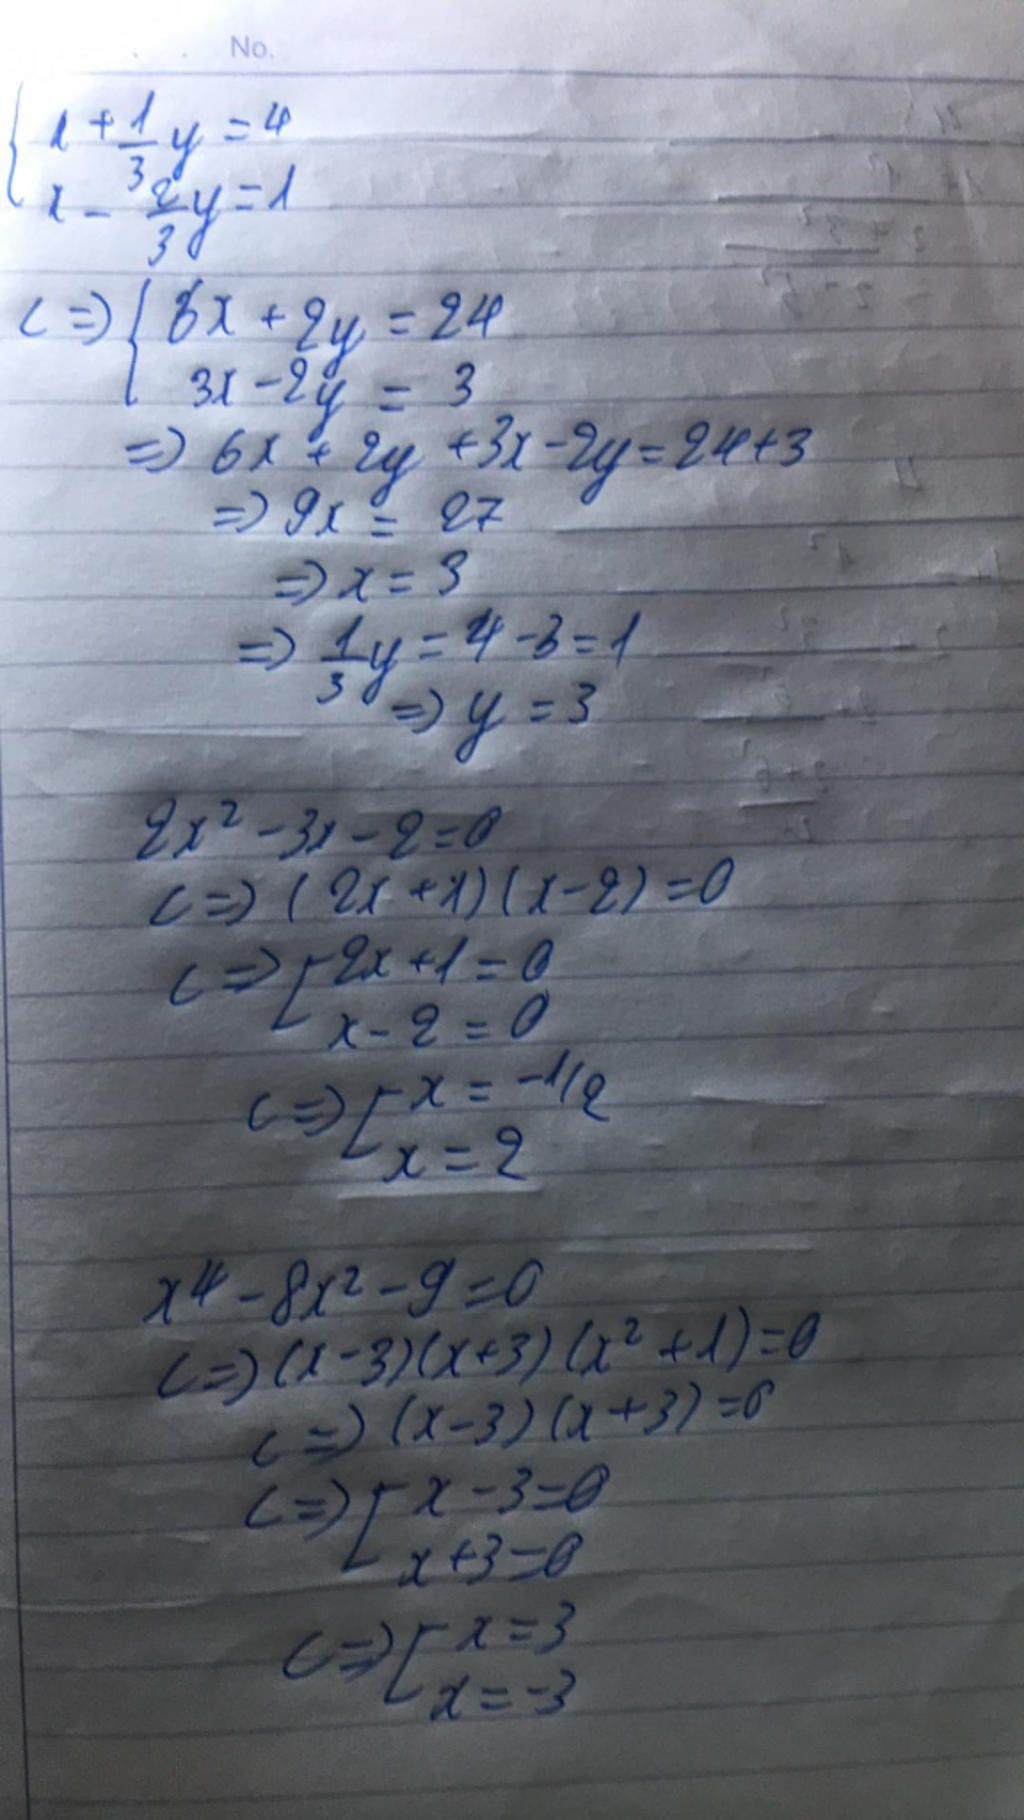 No.
{ x + 1/3 y = 4
x - 2/3 y = 1
<=> { 6x + 2y = 24
3x - 2y = 3
=> 6x + 2y + 3x - 2y = 24 + 3
=> 9x = 27
=> x = 3
=> 1/3 y = 4 - 3 = 1
=> y = 3
2x² - 3x - 2 = 0
<=> (2x + 1)(x - 2) = 0
<=> [ 2x + 1 = 0
x - 2 = 0
<=> [ x = -1/2
x = 2
x⁴ - 8x² - 9 = 0
<=> (x - 3)(x + 3)(x² + 1) = 0
<=> (x - 3)(x + 3) = 0
<=> [ x - 3 = 0
x + 3 = 0
<=> [ x = 3
x = -3